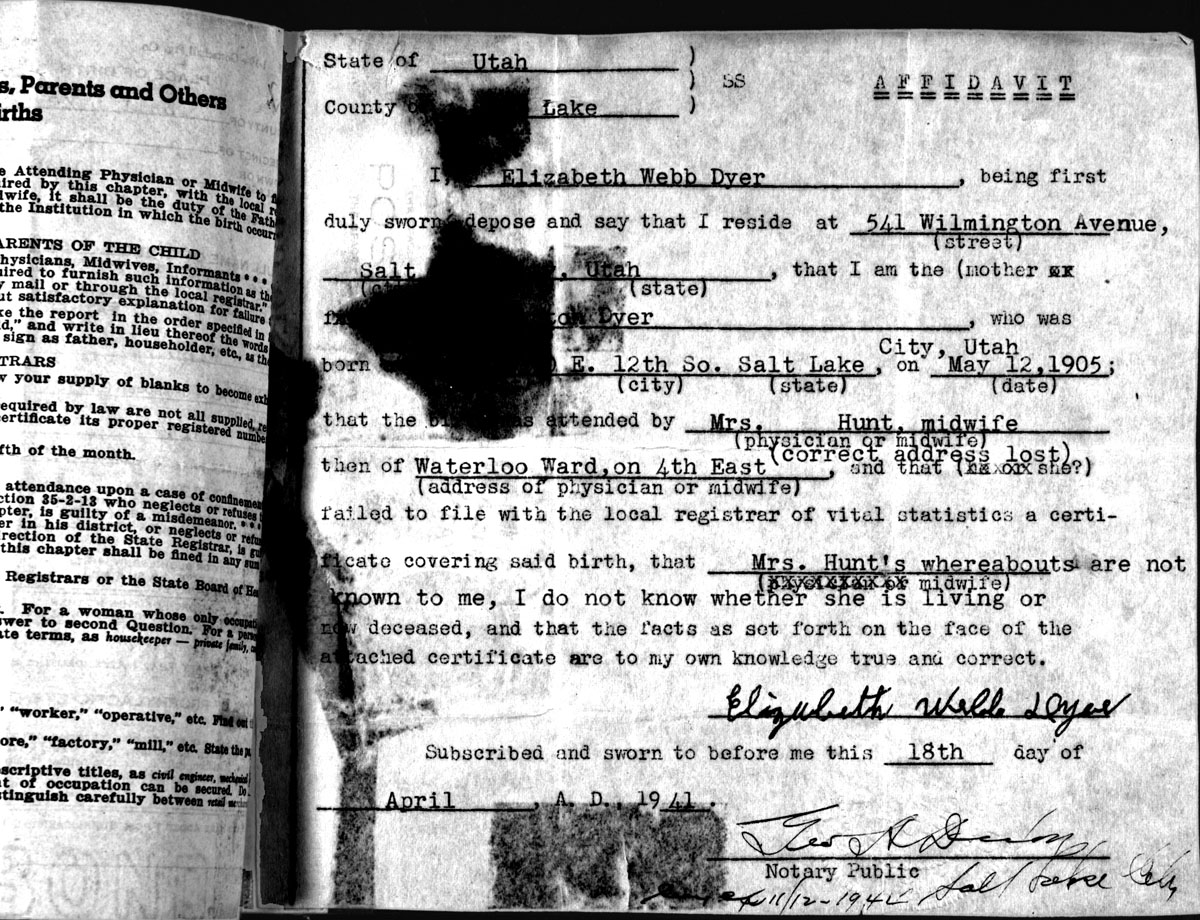 s, Parents and Others
irths
e Attending Physician or Midwife to
ired by this chapter, with the local
dwife, it shall be the duty of the
the Institution in which the birth
ARENTS OF THE CHILD
hysicians, Midwives, Informants * * *
uired to furnish such information as
y mail or through the local registrar."
ut satisfactory explanation for failure
ke the report in the order specified in
d," and write in lieu thereof the words
sign as father, householder, etc., as
TRARS
w your supply of blanks to become
equired by law are not all supplied,
ertificate its proper registered
fth of the month.
attendance upon a case of
ction 35-2-13 who neglects or refuses
pter, is guilty of a misdemeanor. * * *
er in his district, or neglects or
rection of the State Registrar, is
this chapter shall be fined in any
Registrars or the State Board of
. For a woman whose only
swer to second Question. For a
ate terms, as housekeeper — private family,
" "worker," "operative," etc. Find out
ore," "factory," "mill," etc. State the
scriptive titles, as civil engineer,
t of occupation can be secured. Do
tinguish carefully between retail
State of Utah )
) SS AFFIDAVIT
County Lake )
I, Elizabeth Webb Dyer, being first
duly sworn depose and say that I reside at 541 Wilmington Avenue,
(street)
Salt Utah, that I am the (mother
(state)
Dyer, who was
City, Utah
born E. 12th So. Salt Lake, on May 12,1905;
(city) (state) (date)
that the attended by Mrs. Hunt, midwife
(physician or midwife)
(correct address lost)
then of Waterloo Ward,on 4th East, and that (she?)
(address of physician or midwife)
failed to file with the local registrar of vital statistics a certi-
ficate covering said birth, that Mrs. Hunt's whereabouts are not
midwife)
known to me, I do not know whether she is living or
now deceased, and that the facts as set forth on the face of the
attached certificate are to my own knowledge true and correct.
Elizabeth Webb Dyer
Subscribed and sworn to before me this 18th day of
April, A. D., 1941.
Notary Public
11/12-1942 Salt Lake City